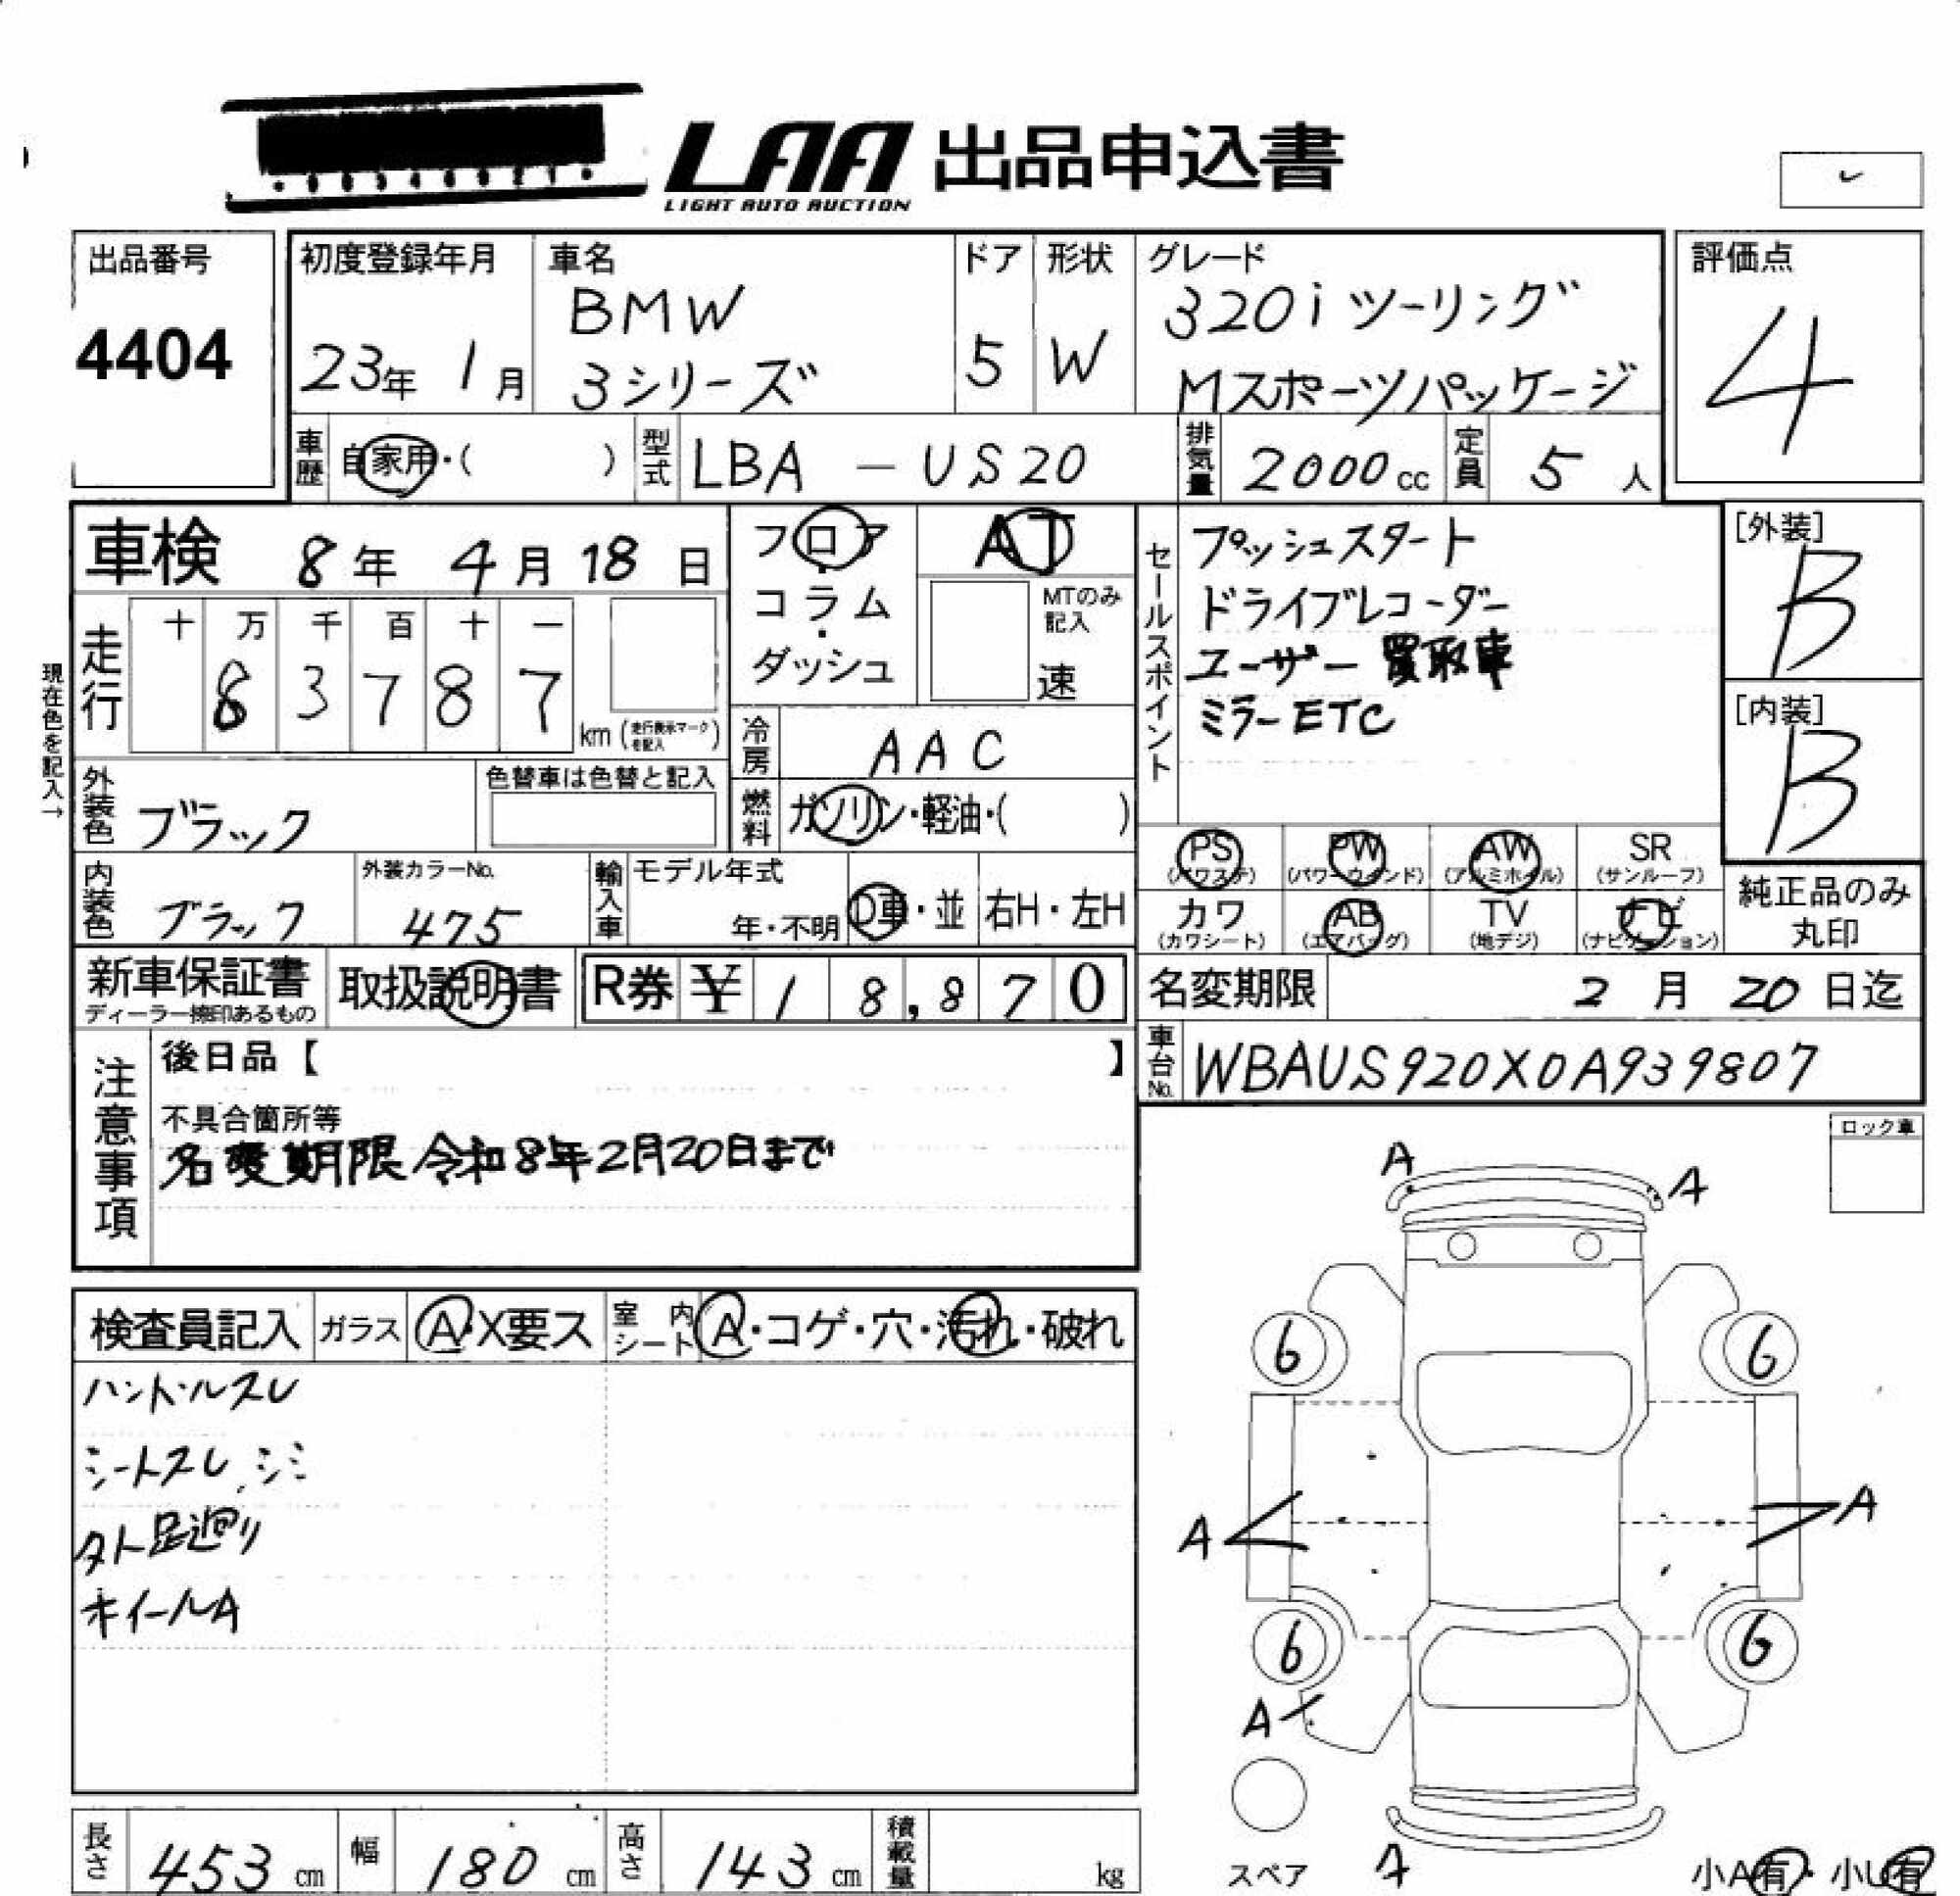 LAA 出品申込書
LIGHT AUTO AUCTION
出品番号
4404
初度登録年月
23年 1月
車名
BMW
3シリーズ
ドア
5
形状
W
グレード
320i ツーリング
Mスポーツパッケージ
評価点
4
車歴 自家用・( )
型式 LBA - US20
排気量 2000cc
定員 5人
車検 8年 4月 18日
現在色を記入→
走行
十 万 千 百 十 一
8 3 7 8 7
km (走行表示マークを記入)
フロア
・
コラム
・
ダッシュ
AT
MTのみ記入
速
冷房 AAC
燃料 ガソリン・軽油・( )
セールスポイント
プッシュスタート
ドライブレコーダー
ユーザー買取車
ミラーETC
[外装]
B
[内装]
B
外装色 ブラック
色替車は色替と記入
内装色 ブラック
外装カラーNo.
475
輸入車
モデル年式
年・不明
D車・並
右H・左H
PS (パワステ)
PW (パワーウインド)
AW (アルミホイル)
SR (サンルーフ)
カワ (カワシート)
AB (エアバッグ)
TV (地デジ)
ナビ (ナビゲーション)
純正品のみ
丸印
新車保証書
ディーラー捺印あるもの
取扱説明書
R券 ¥ 18,870
名変期限 2月20日迄
車台No. WBAUS920X0A939807
注意事項
後日品【 】
不具合箇所等
名変期限 令和8年2月20日まで
ロック車
検査員記入
ガラス A・X要ス
室内シート A・コゲ・穴・汚れ・破れ
ハンドルスレ
シートスレ、シミ
タト足廻り
ホイールA
A
A
6
6
A
A
6
6
A
スペア
A
小A有・小U有
長さ 453cm
幅 180cm
高さ 143cm
積載量 kg